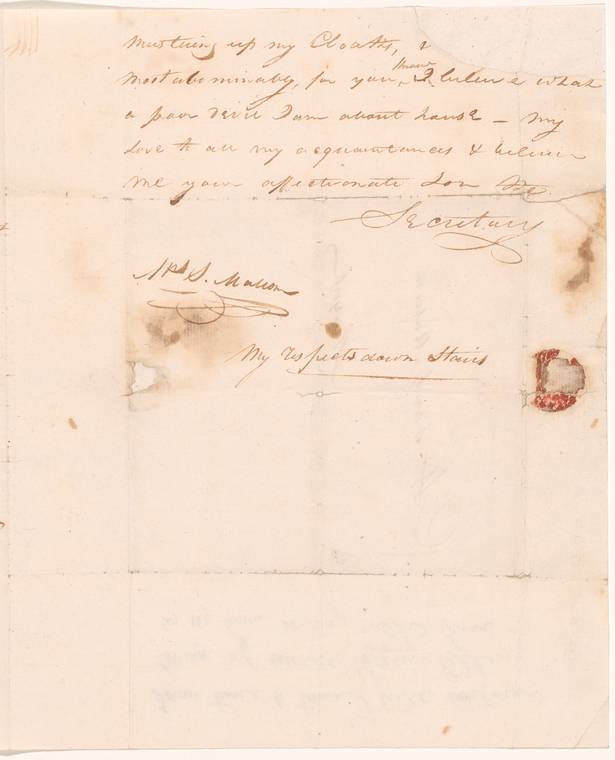 up my Cloaths, &
most abominably, for you know, I believe what
a poor devil I am about house – My
Love to all my acquaintances & believe
me your affectionate Son &c.
Secretary
Mrs S. Mason
My respects down Stairs